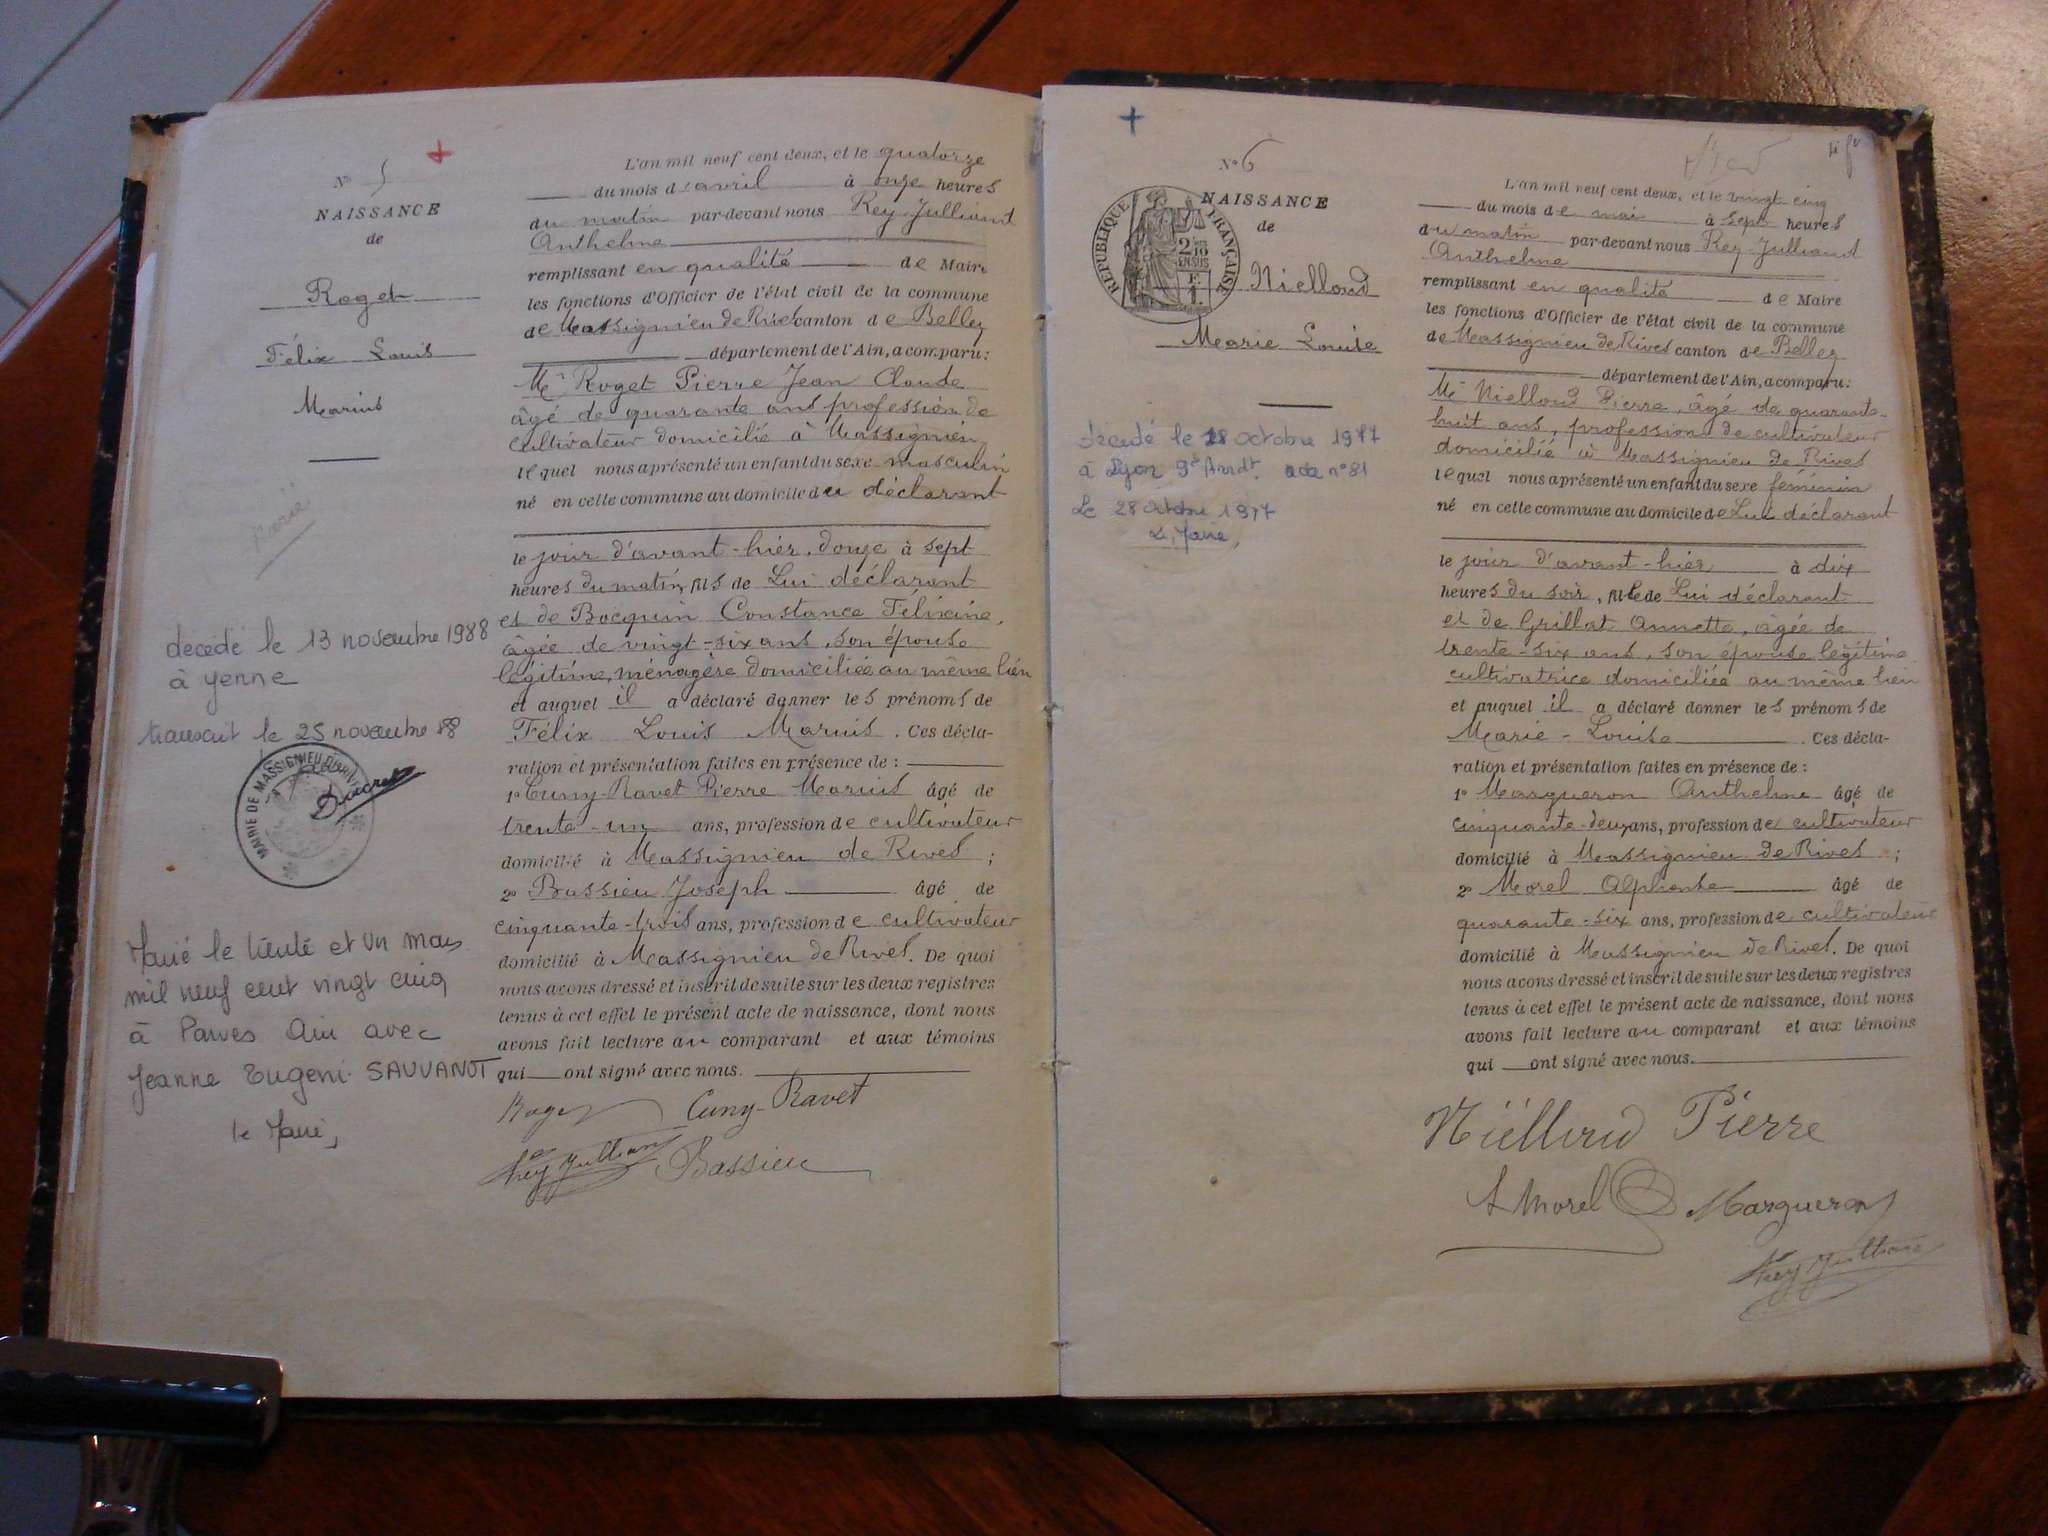 N° 5
NAISSANCE
de
Roget
Félix Louis
Marius
Marié
décédé le 13 novembre 1988
à Yenne
transcrit le 25 novembre 88
MAIRIE DE MASSIGNIEU DE RIVES
Marié le trente et un mars
mil neuf cent vingt cinq
à Parves Ain avec
Jeanne Eugeni SAUVANOT
le Maire,
L'an mil neuf cent deux, et le quatorze
du mois d'avril à onze heures
du matin par-devant nous Rey-Julliand
Anthelme
remplissant en qualité de Maire
les fonctions d'Officier de l'état civil de la commune
de Massignieu de Rives canton de Belley
département de l'Ain, a comparu :
Mr Roget Pierre Jean Claude
âgé de quarante ans profession de
cultivateur domicilié à Massignieu
lequel nous a présenté un enfant du sexe masculin
né en cette commune au domicile du déclarant
le jour d'avant-hier, douze à sept
heures du matin, fils de Lui déclarant
et de Bocquin Constance Félicine,
âgée de vingt-six ans, son épouse
légitime, ménagère domiciliée au même lieu
et auquel il a déclaré donner les prénoms de
Félix Louis Marius. Ces décla-
ration et présentation faites en présence de :
1° Cuny-Ravet Pierre Marius âgé de
trente-un ans, profession de cultivateur
domicilié à Massignieu de Rives ;
2° Bassieu Joseph âgé de
cinquante-trois ans, profession de cultivateur
domicilié à Massignieu de Rives. De quoi
nous avons dressé et inscrit de suite sur les deux registres
tenus à cet effet le présent acte de naissance, dont nous
avons fait lecture au comparant et aux témoins
qui ont signé avec nous.
Roget Cuny-Ravet
Rey Julliand Bassieu
N° 6
NAISSANCE
de
RÉPUBLIQUE FRANÇAISE
2/10
EN SUS
Nielloud
Marie Louise
décédé le 28 octobre 1977
à Lyon 9e Arrdt. acte n° 81
Le 28 octobre 1977
Le Maire,
L'an mil neuf cent deux, et le vingt-cinq
du mois de mai à sept heures
du matin par-devant nous Rey-Julliand
Anthelme
remplissant en qualité de Maire
les fonctions d'Officier de l'état civil de la commune
de Massignieu de Rives canton de Belley
département de l'Ain, a comparu :
Mr Nielloud Pierre, âgé de quarante-
huit ans, profession de cultivateur
domicilié à Massignieu de Rives
lequel nous a présenté un enfant du sexe féminin
né en cette commune au domicile de Lui déclarant
le jour d'avant-hier à dix
heures du soir, fille de Lui déclarant
et de Grillat Annette, âgée de
trente-six ans, son épouse légitime
cultivatrice domiciliée au même lieu
et auquel il a déclaré donner les prénoms de
Marie-Louise. Ces décla-
ration et présentation faites en présence de :
1° Margueron Anthelme âgé de
cinquante-deux ans, profession de cultivateur
domicilié à Massignieu de Rives ;
2° Morel Alphonse âgé de
quarante-six ans, profession de cultivateur
domicilié à Massignieu de Rives. De quoi
nous avons dressé et inscrit de suite sur les deux registres
tenus à cet effet le présent acte de naissance, dont nous
avons fait lecture au comparant et aux témoins
qui ont signé avec nous.
Niélloud Pierre
A Morel Margueron
Rey Julliand